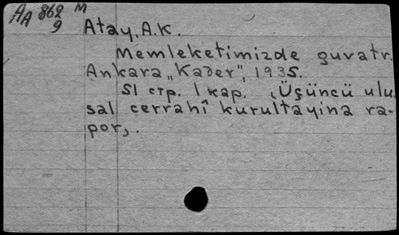 AA 862 M
9
Atay, A.K.
Memleketimizde guvatr.
Ankara, „Kader", 1935.
51 стр. 1 кар. (Üçüncü ulu-
sal cerrahî kurultayina ra-
por).